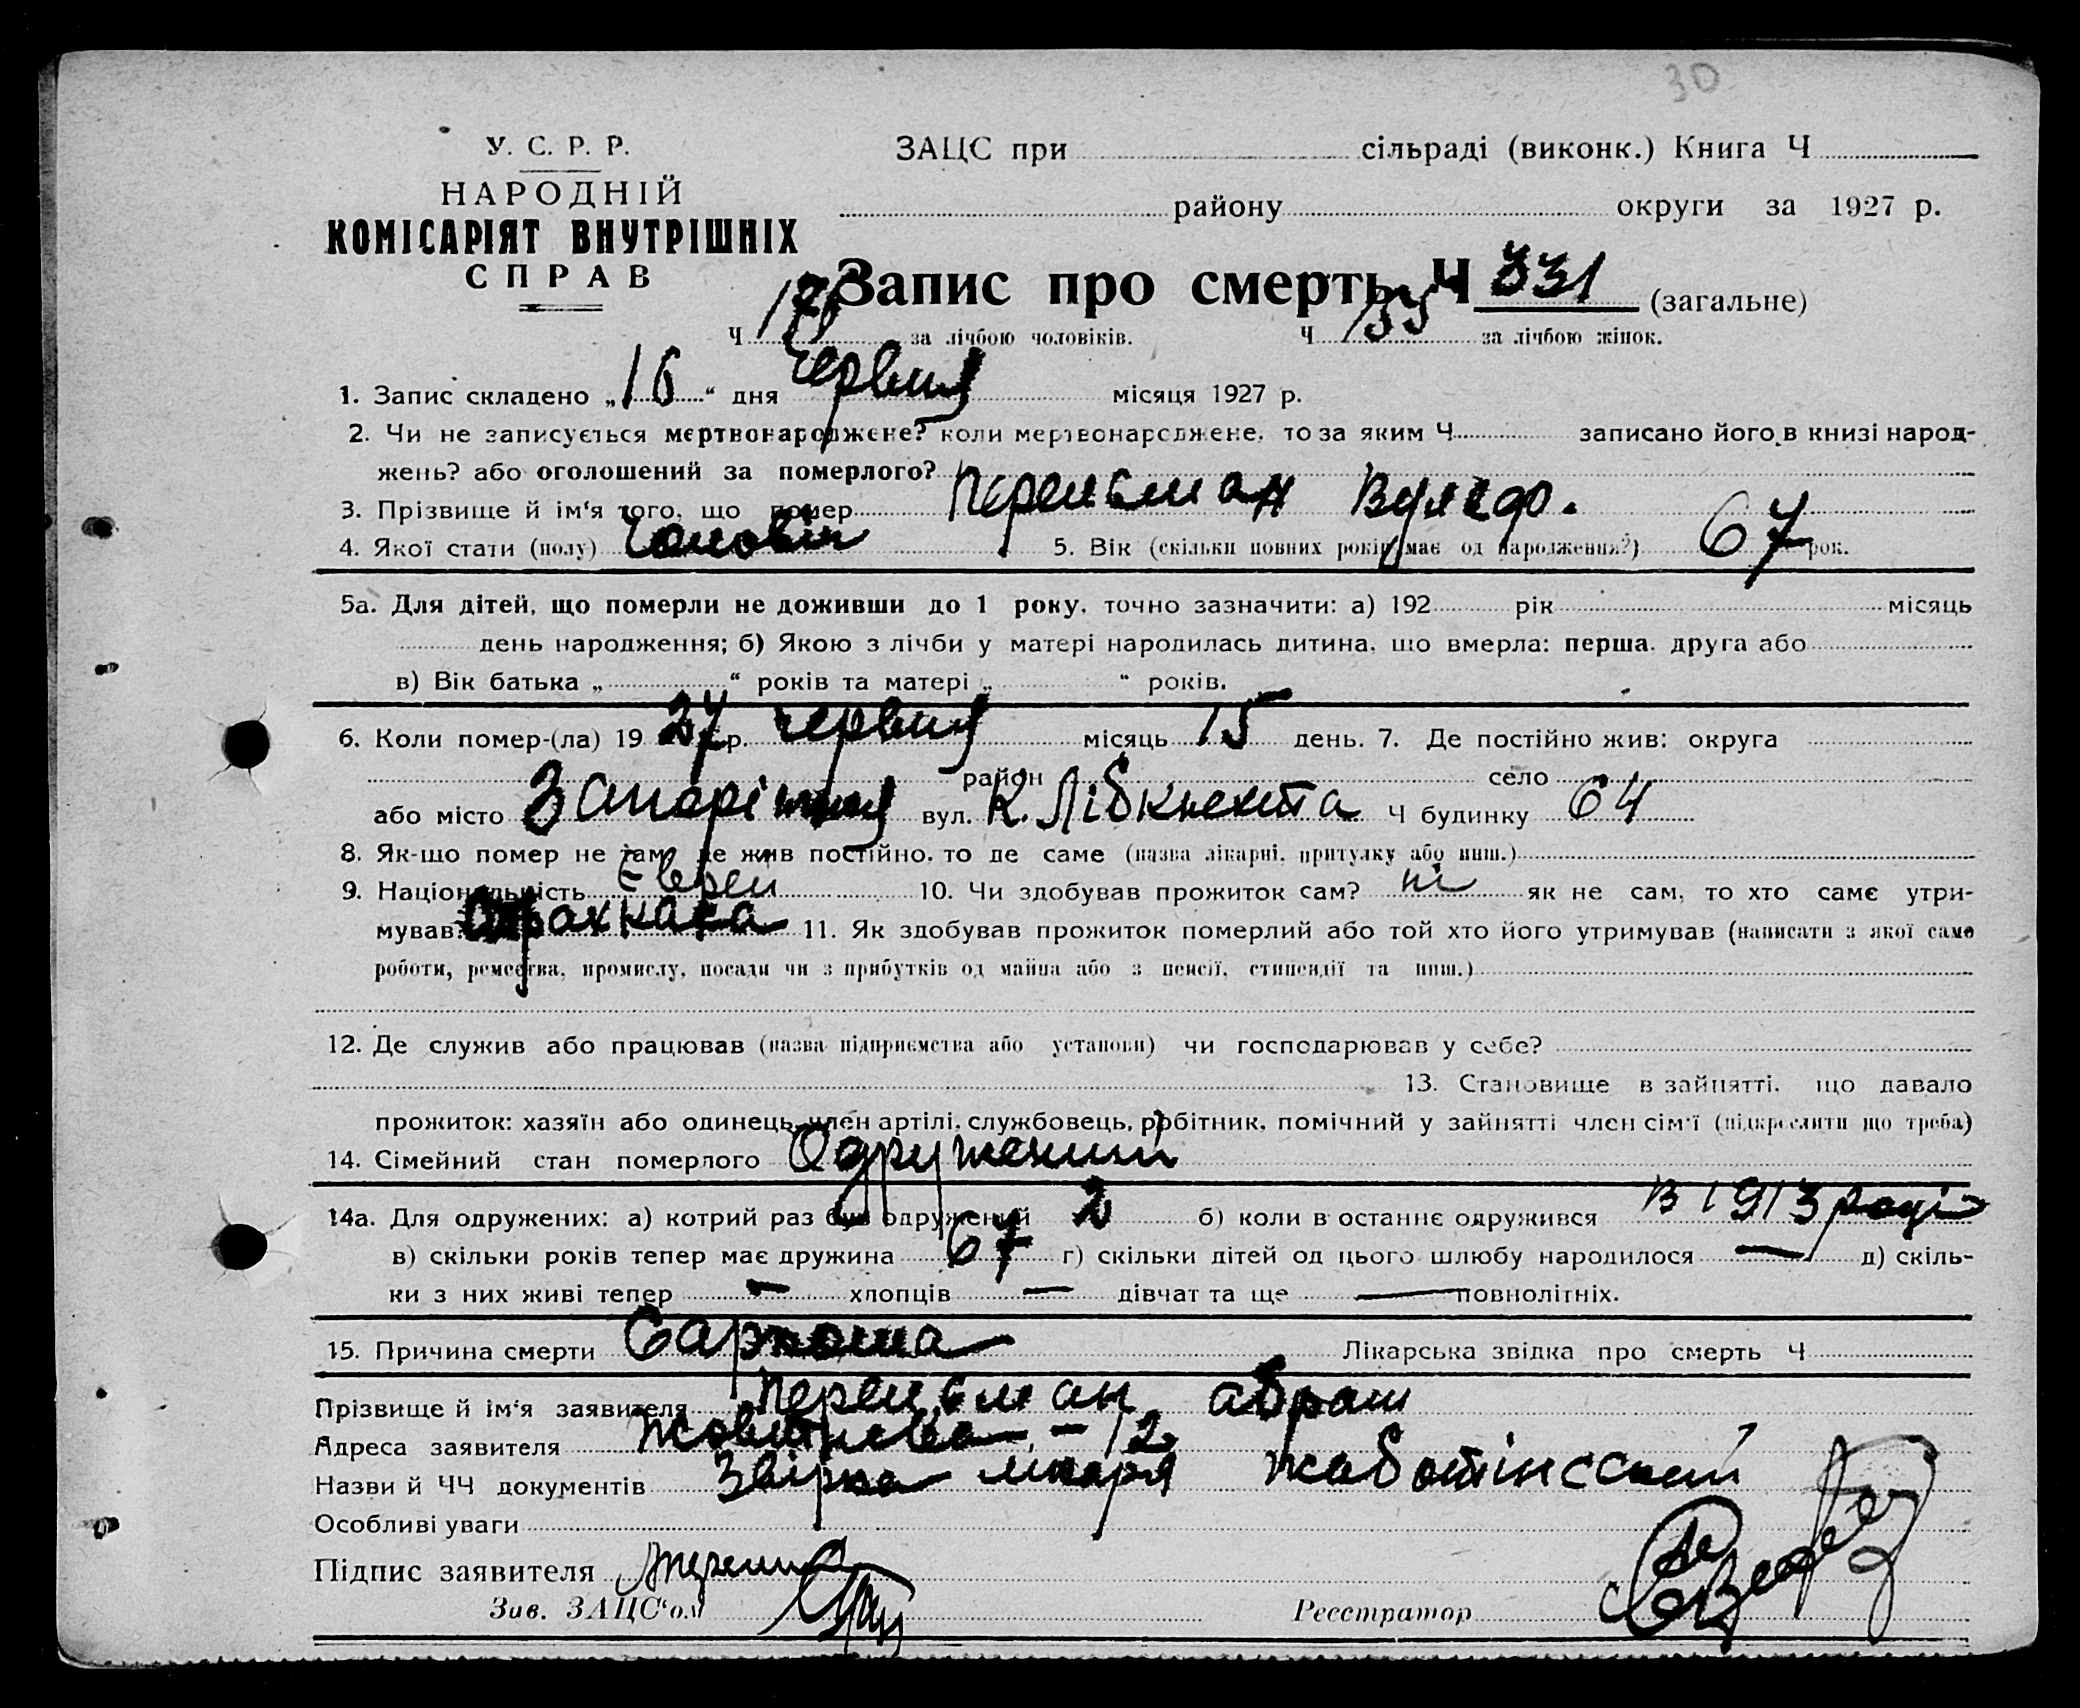 30
У. С. Р. Р.
НАРОДНІЙ
КОМІСАРІЯТ ВНУТРІШНІХ
СПРАВ
ЗАЦС при сільраді (виконк.) Книга Ч
району округи за 1927 р.
Запис про смерть Ч 331 (загальне)
Ч за лічбою чоловіків. Ч 155 за лічбою жінок.
1. Запис складено „16“ дня червня місяця 1927 р.
2. Чи не записується мертвонароджене? коли мертвонароджене, то за яким Ч записано його в книзі народ-
жень? або оголошений за померлого?
3. Прізвище й ім‘я того, що помер Перельман
4. Якої стати (полу) Чоловік 5. Вік (скільки повних років має од народження?) 67 рок.
5а. Для дітей, що померли не доживши до 1 року, точно зазначити: а) 192 рік місяць
день народження; б) Якою з лічби у матері народилась дитина, що вмерла: перша, друга або
в) Вік батька „ “ років та матері „ “ років.
6. Коли помер-(ла) 1927 р. червня місяць 15 день. 7. Де постійно жив: округа
район село
або місто Запоріжжя вул. К. Лібкнехта Ч будинку 64
8. Як-що помер не там, де жив постійно, то де саме (назва лікарні, притулку або инш.)
9. Національність Єврей 10. Чи здобував прожиток сам? ні як не сам, то хто саме утри-
мував? Страхкаса 11. Як здобував прожиток померлий або той хто його утримував (написати з якої саме
роботи, ремества, промислу, посади чи з прибутків од майна або з пенсії, стипендії та инш.)
12. Де служив або працював (назва підприємства або установи) чи господарював у себе?
13. Становище в зайнятті, що давало
прожиток: хазяїн або одинець, член артілі, службовець, робітник, помічний у зайнятті член сім‘ї (підкреслити що треба)
14. Сімейний стан померлого Одружений
14а. Для одружених: а) котрий раз був одружений 2 б) коли в останнє одружився в 1913 році
в) скільки років тепер має дружина 67 г) скільки дітей од цього шлюбу народилося — д) скіль-
ки з них живі тепер — хлопців — дівчат та ще — повнолітніх.
15. Причина смерти Саркома Лікарська звідка про смерть Ч
Прізвище й ім‘я заявителя Перельман Абрам
Адреса заявителя Жовтнева - 12
Назви й ЧЧ документів лікаря Жаботінсский
Особливі уваги
Підпис заявителя
Зав. ЗАЦС‘ом Реєстратор